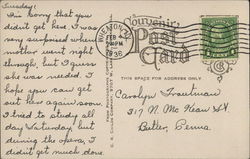 Tuesday:
I'm sorry that you
didn't get here. I was
very surprised when
mother went right
through, but I guess
she was needed. I
hope you can get
out here again soon.
I tried to study all
day Saturday, but
during the opera, I
didn't get much done.
FEB 4
PM
1936
Souvenir
Post
Card
THIS SPACE FOR ADDRESS ONLY
Carolyn Troutman
317 N. McKean St
Butler, Penna.